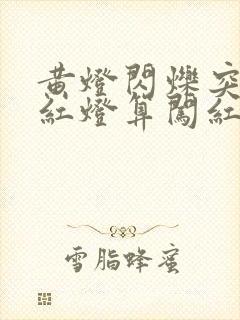 黄燈閃爍突
紅燈算闖紅
雪脂蜂蜜